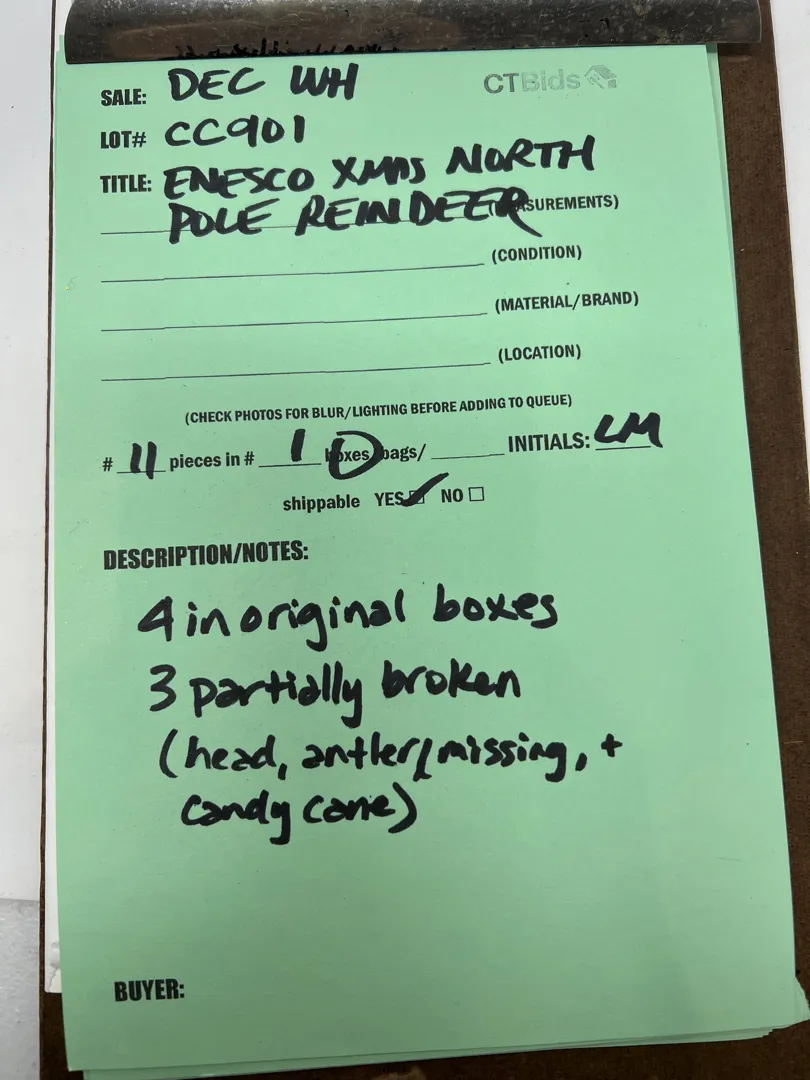 SALE: DEC WH
CTBids
LOT# CC901
TITLE: ENESCO XMAS NORTH
POLE REINDEER ASUREMENTS)
(CONDITION)
(MATERIAL/BRAND)
(LOCATION)
(CHECK PHOTOS FOR BLUR/LIGHTING BEFORE ADDING TO QUEUE)
# 11 pieces in # 1 boxes/bags/ INITIALS: LM
shippable YES NO
DESCRIPTION/NOTES:
4 in original boxes
3 partially broken
(head, antler/missing, +
candy cane)
BUYER: